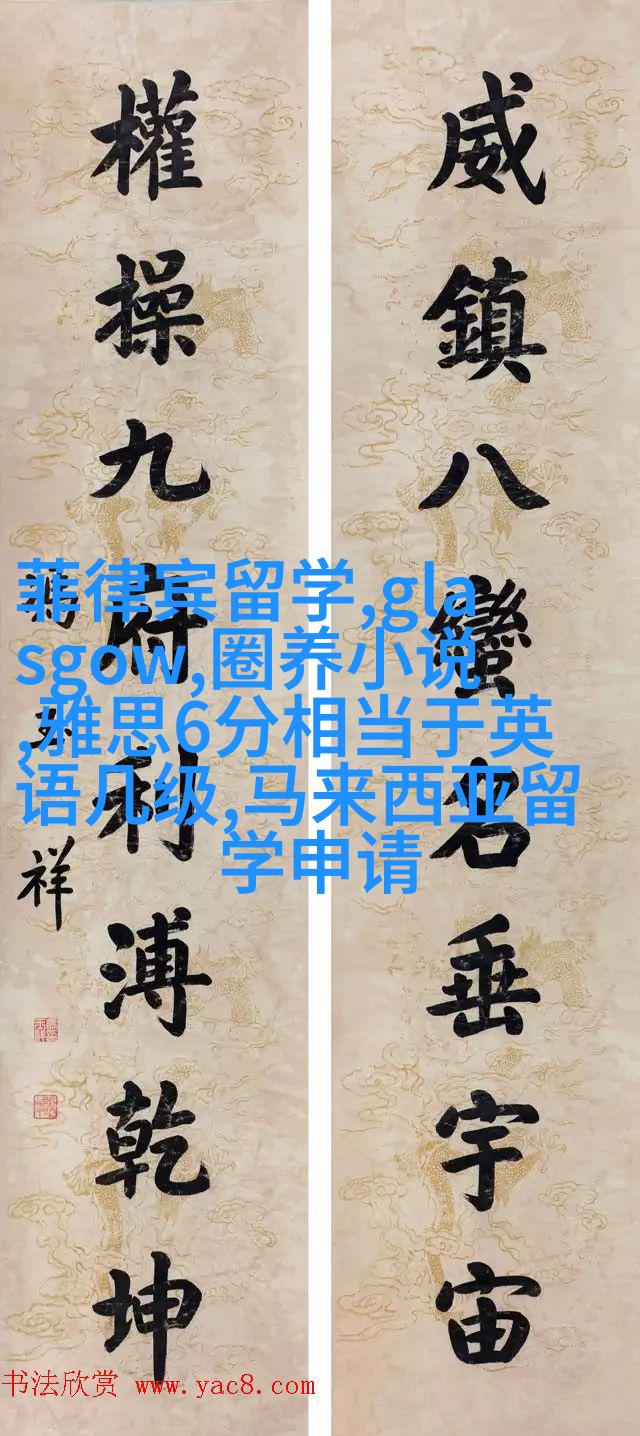 威鎮八蠻名垂宇宙
權操九府利溥乾坤
祥
菲律宾留学,gla
sgow,圈养小说
,雅思6分相当于英
语几级,马来西亚留
学申请
书法欣赏 www.yac8.com